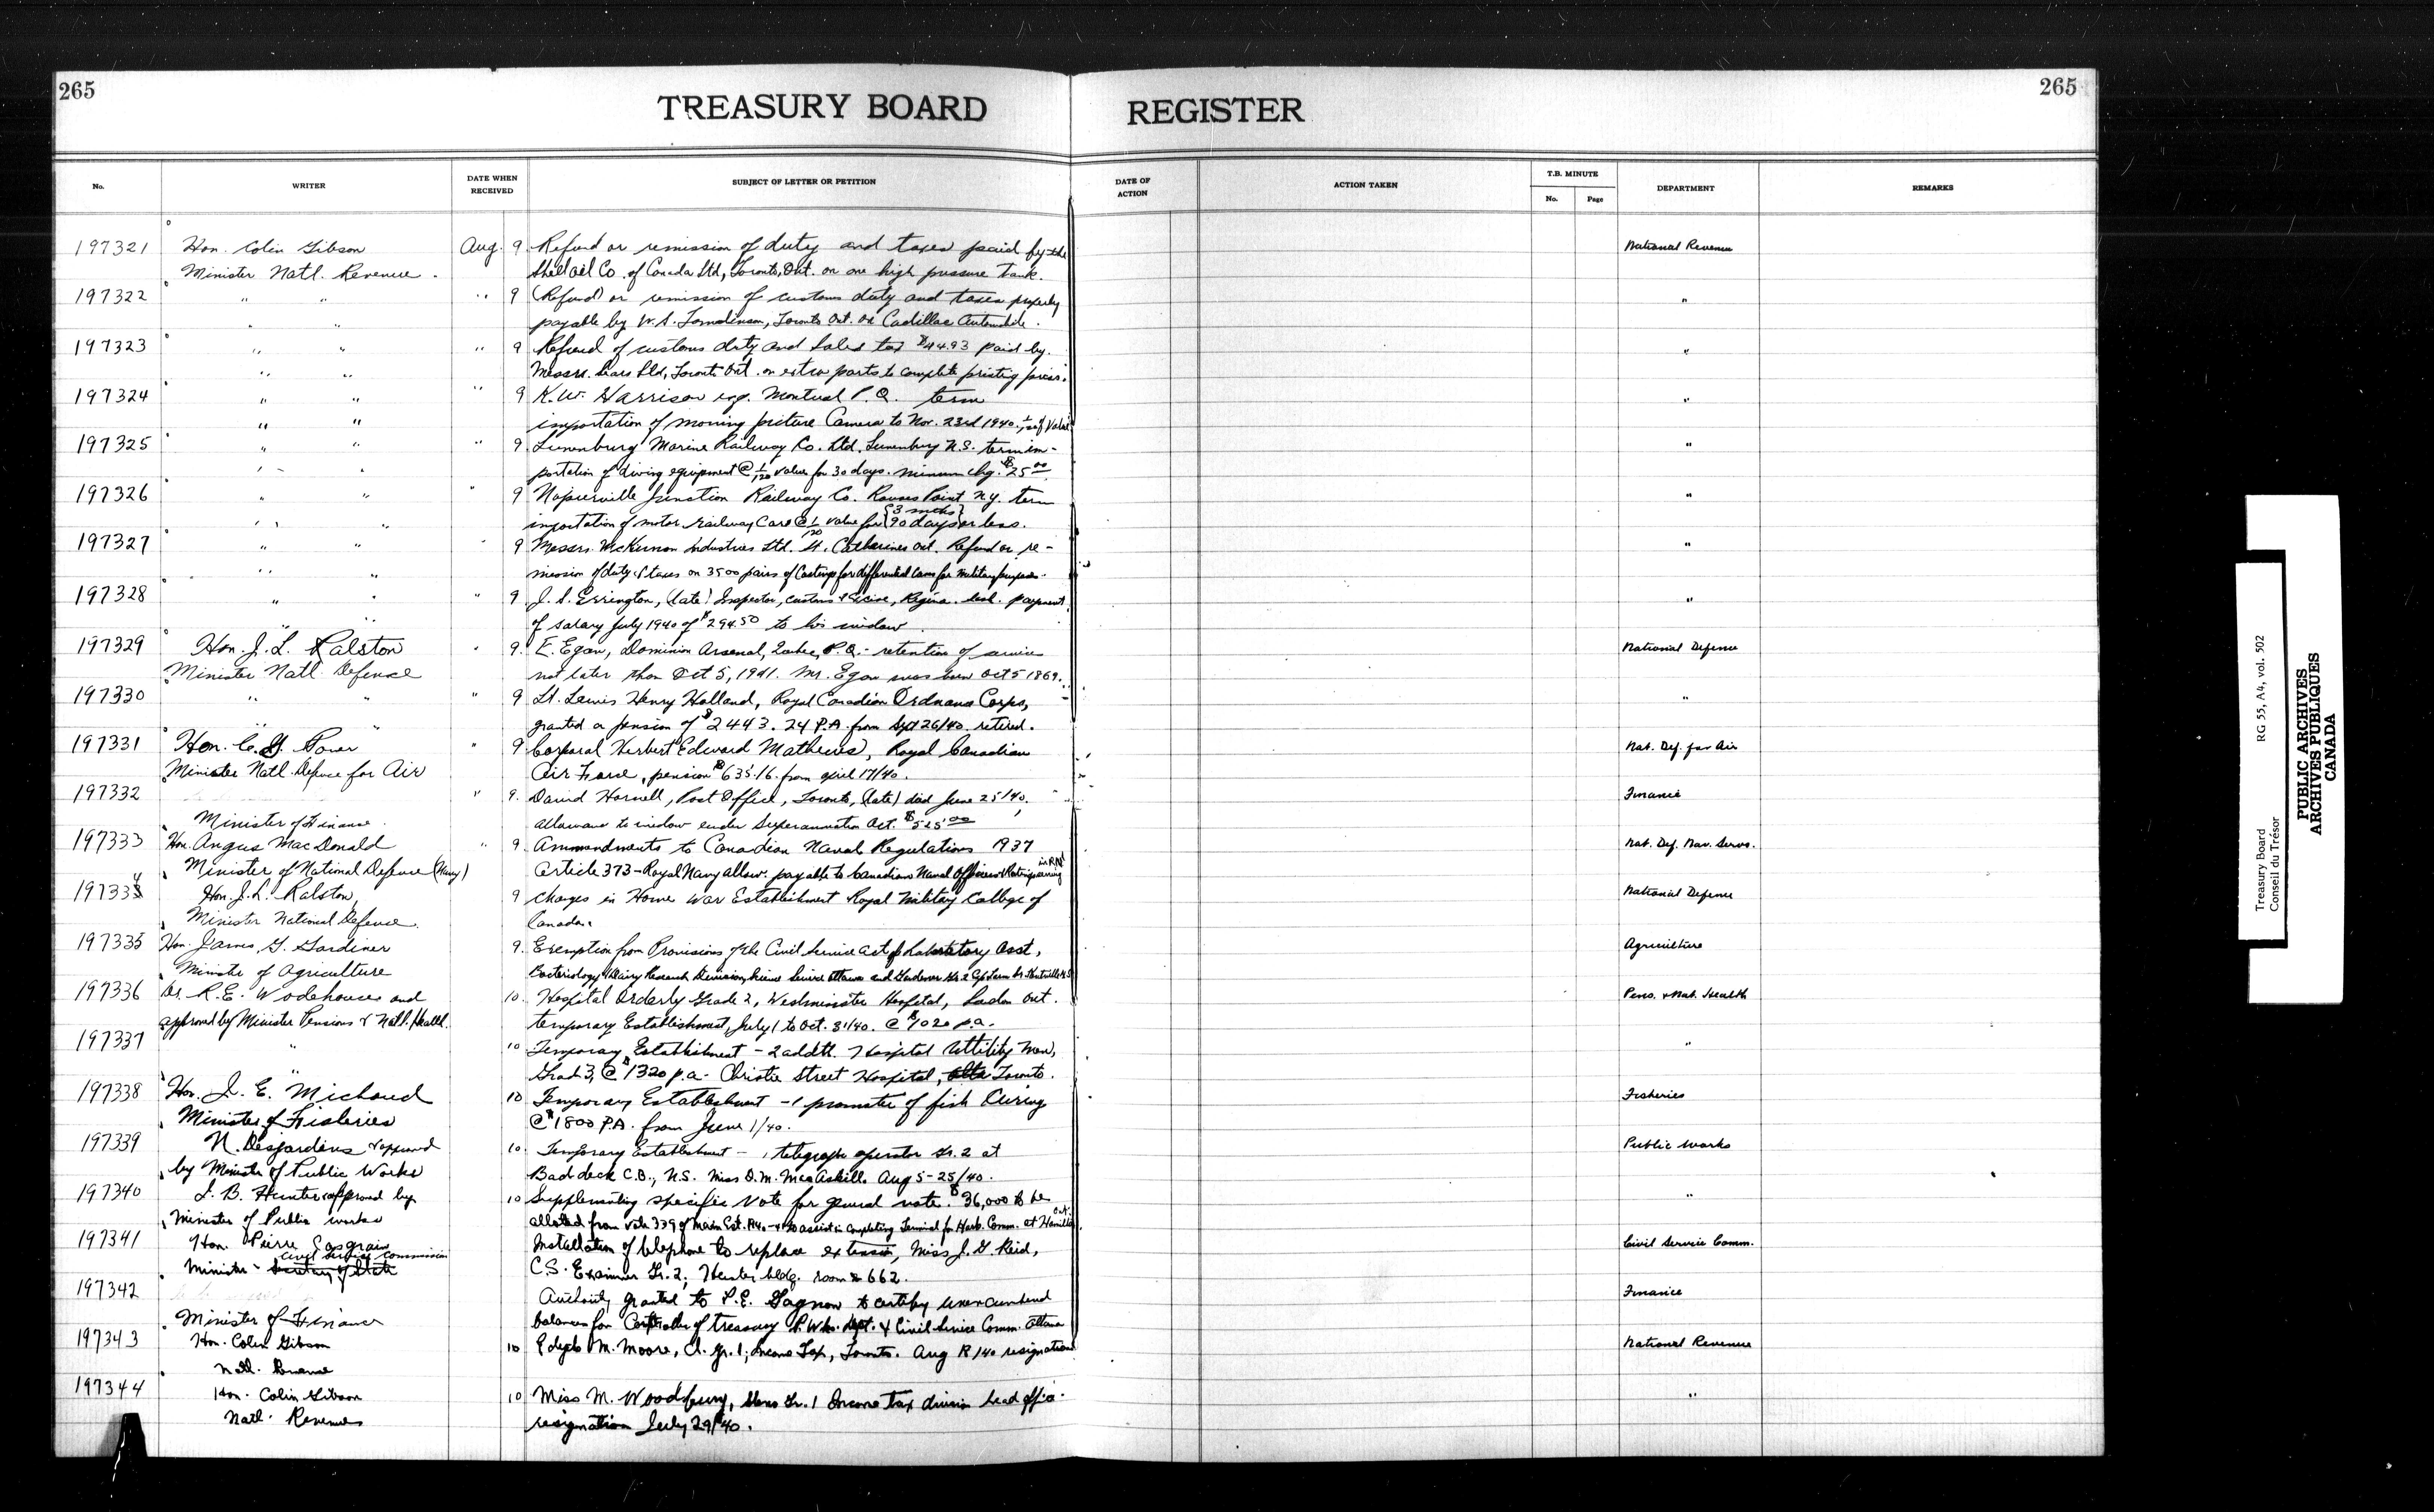 265
TREASURY BOARD REGISTER
265
No. WRITER DATE WHEN RECEIVED SUBJECT OF LETTER OR PETITION DATE OF ACTION ACTION TAKEN T.B. MINUTE No. Page DEPARTMENT REMARKS
197321 Hon. Colin Gibson Aug. 9 Refund or remission of duty and taxes paid by the National Revenue
Minister Natl. Revenue. Shell Oil Co. of Canada Ltd, Toronto, Ont. on one high pressure tank.
197322 " " " 9 (Refund) or remission of customs duty and taxes properly "
" " payable by W.S. Tomlinson, Toronto Ont. on Cadillac Automobile.
197323 " " " 9 Refund of customs duty and sales tax $44.93 paid by "
" " Messrs. Sears Ltd, Toronto Ont. on extra parts to complete printing press.
197324 " " " 9 K.W. Harrison esq. Montreal P.Q. term "
" " importation of moving picture Camera to Nov. 23rd 1940. of Value
197325 " " " 9. Lunenburg Marine Railway Co. Ltd. Lunenburg N.S. term im- "
" " portation of diving equipment @ 1/120 value for 30 days. minimum chg. $25.00
197326 " " " 9 Napierville Junction Railway Co. Rouses Point N.Y. term "
" " importation of motor railway Cars @ 1/120 value for {3 mths} {90 days} or less.
197327 " " " 9 Messrs. McKinnon Industries Ltd. St. Catharines Ont. Refund or re- "
" " mission of duty & taxes on 3500 pairs of Castings for differential Cams for Military purposes.
197328 " " " 9. J. S. Errington, (late) Inspector, Customs & Excise, Regina. Sask. payment "
" " of salary July 1940 of $294.50 to his widow.
197329 Hon. J. L. Ralston " 9. E. Egan, Dominion Arsenal, Quebec, P.Q. - retention of services National Defence
Minister Natl. Defence not later than Oct 5, 1941. Mr. Egan was born Oct 5 1869.
197330 " " " 9 Lt. Lewis Henry Holland, Royal Canadian Ordnance Corps, "
" " granted a pension of $2443.24 P.A. from Sept 26/40. retired.
197331 Hon. C. G. Power " 9 Corporal Herbert Edward Mathews, Royal Canadian Nat. Def. for Air
Minister Natl. Defence for Air Air Force, pension $635.16 from April 17/40.
197332 " 9. David Hornell, Post Office, Toronto, (late) died June 25/40. Finance
Minister of Finance. allowance to widow under Superannuation Act. $525.00
197333 Hon. Angus MacDonald " 9. Ammendments to Canadian Naval Regulations 1937 Nat. Def. Nav. Servs.
Minister of National Defence (Navy) Article 373 - Royal Navy allow. payable to Canadian Naval Officers & Ratings serving in RN
197334 Hon. J. L. Ralston, 9 Changes in Home War Establishment Royal Military College of National Defence
Minister National Defence. Canada.
197335 Hon. James G. Gardiner 9. Exemption from Provisions of the Civil Service Act of Laboratory Asst, Agriculture
Minister of Agriculture Bacteriology & Dairy Research Division, Science Service Ottawa and Gardener Gr. 2
197336 Dr. R.E. Wodehouse and 10. Hospital Orderly Grade 2, Westminster Hospital, London Ont. Pens. & Nat. Health
approved by Minister Pensions & Natl. Health. temporary Establishment, July 1 to Oct. 31/40. @ $1020 p.a.
197337 " 10 Temporary Establishment - 2 addtl. Hospital Uttility Men, "
" Grade 3, @ $1320 p.a. - Christie Street Hospital, Toronto.
197338 Hon. J. E. Michaud 10 Temporary Establishment - 1 promoter of fish Curing Fisheries
Minister of Fisheries @ $1800 P.A. from June 1/40.
197339 N. Desjardins & approved 10. Temporary Establishment - 1 telegraph operator Gr. 2 at Public Works
by Minister of Public Works Baddeck C.B., N.S. Miss D.M. MacAskill. Aug 5-25/40.
197340 J. B. Hunter & approved by 10 Supplementing specific Vote for general vote. $36,000 to be "
Minister of Public Works alloted from vote 339 of Main Est. 1940-41 to assist in completing Terminal for Harb. Comm. at Hamilton, Ont.
197341 Hon. Pierre Casgrain Installation of telephone to replace extension, Miss J. G. Reid, Civil Service Comm.
Civil Service Commission
Minister - Secretary of State C.S. Examiner Gr. 2, Hunter bldg. room 662.
197342 Authority granted to P.E. Gagnon to certify unencumbered Finance
Minister of Finance balances for Controller of Treasury P. Wks. Dept. & Civil Service Comm. Ottawa
197343 Hon. Colin Gibson 10 M. Moore, Cl. Gr. 1, Income Tax, Toronto. Aug 12/40 resignation National Revenue
Natl. Revenue
197344 Hon. Colin Gibson 10 Miss M. Woodbury, Steno Gr. 1 Income tax division head office. "
Natl. Revenue resignation July 29/40.
Treasury Board RG 55, A4, vol. 502
Conseil du Trésor
PUBLIC ARCHIVES
ARCHIVES PUBLIQUES
CANADA